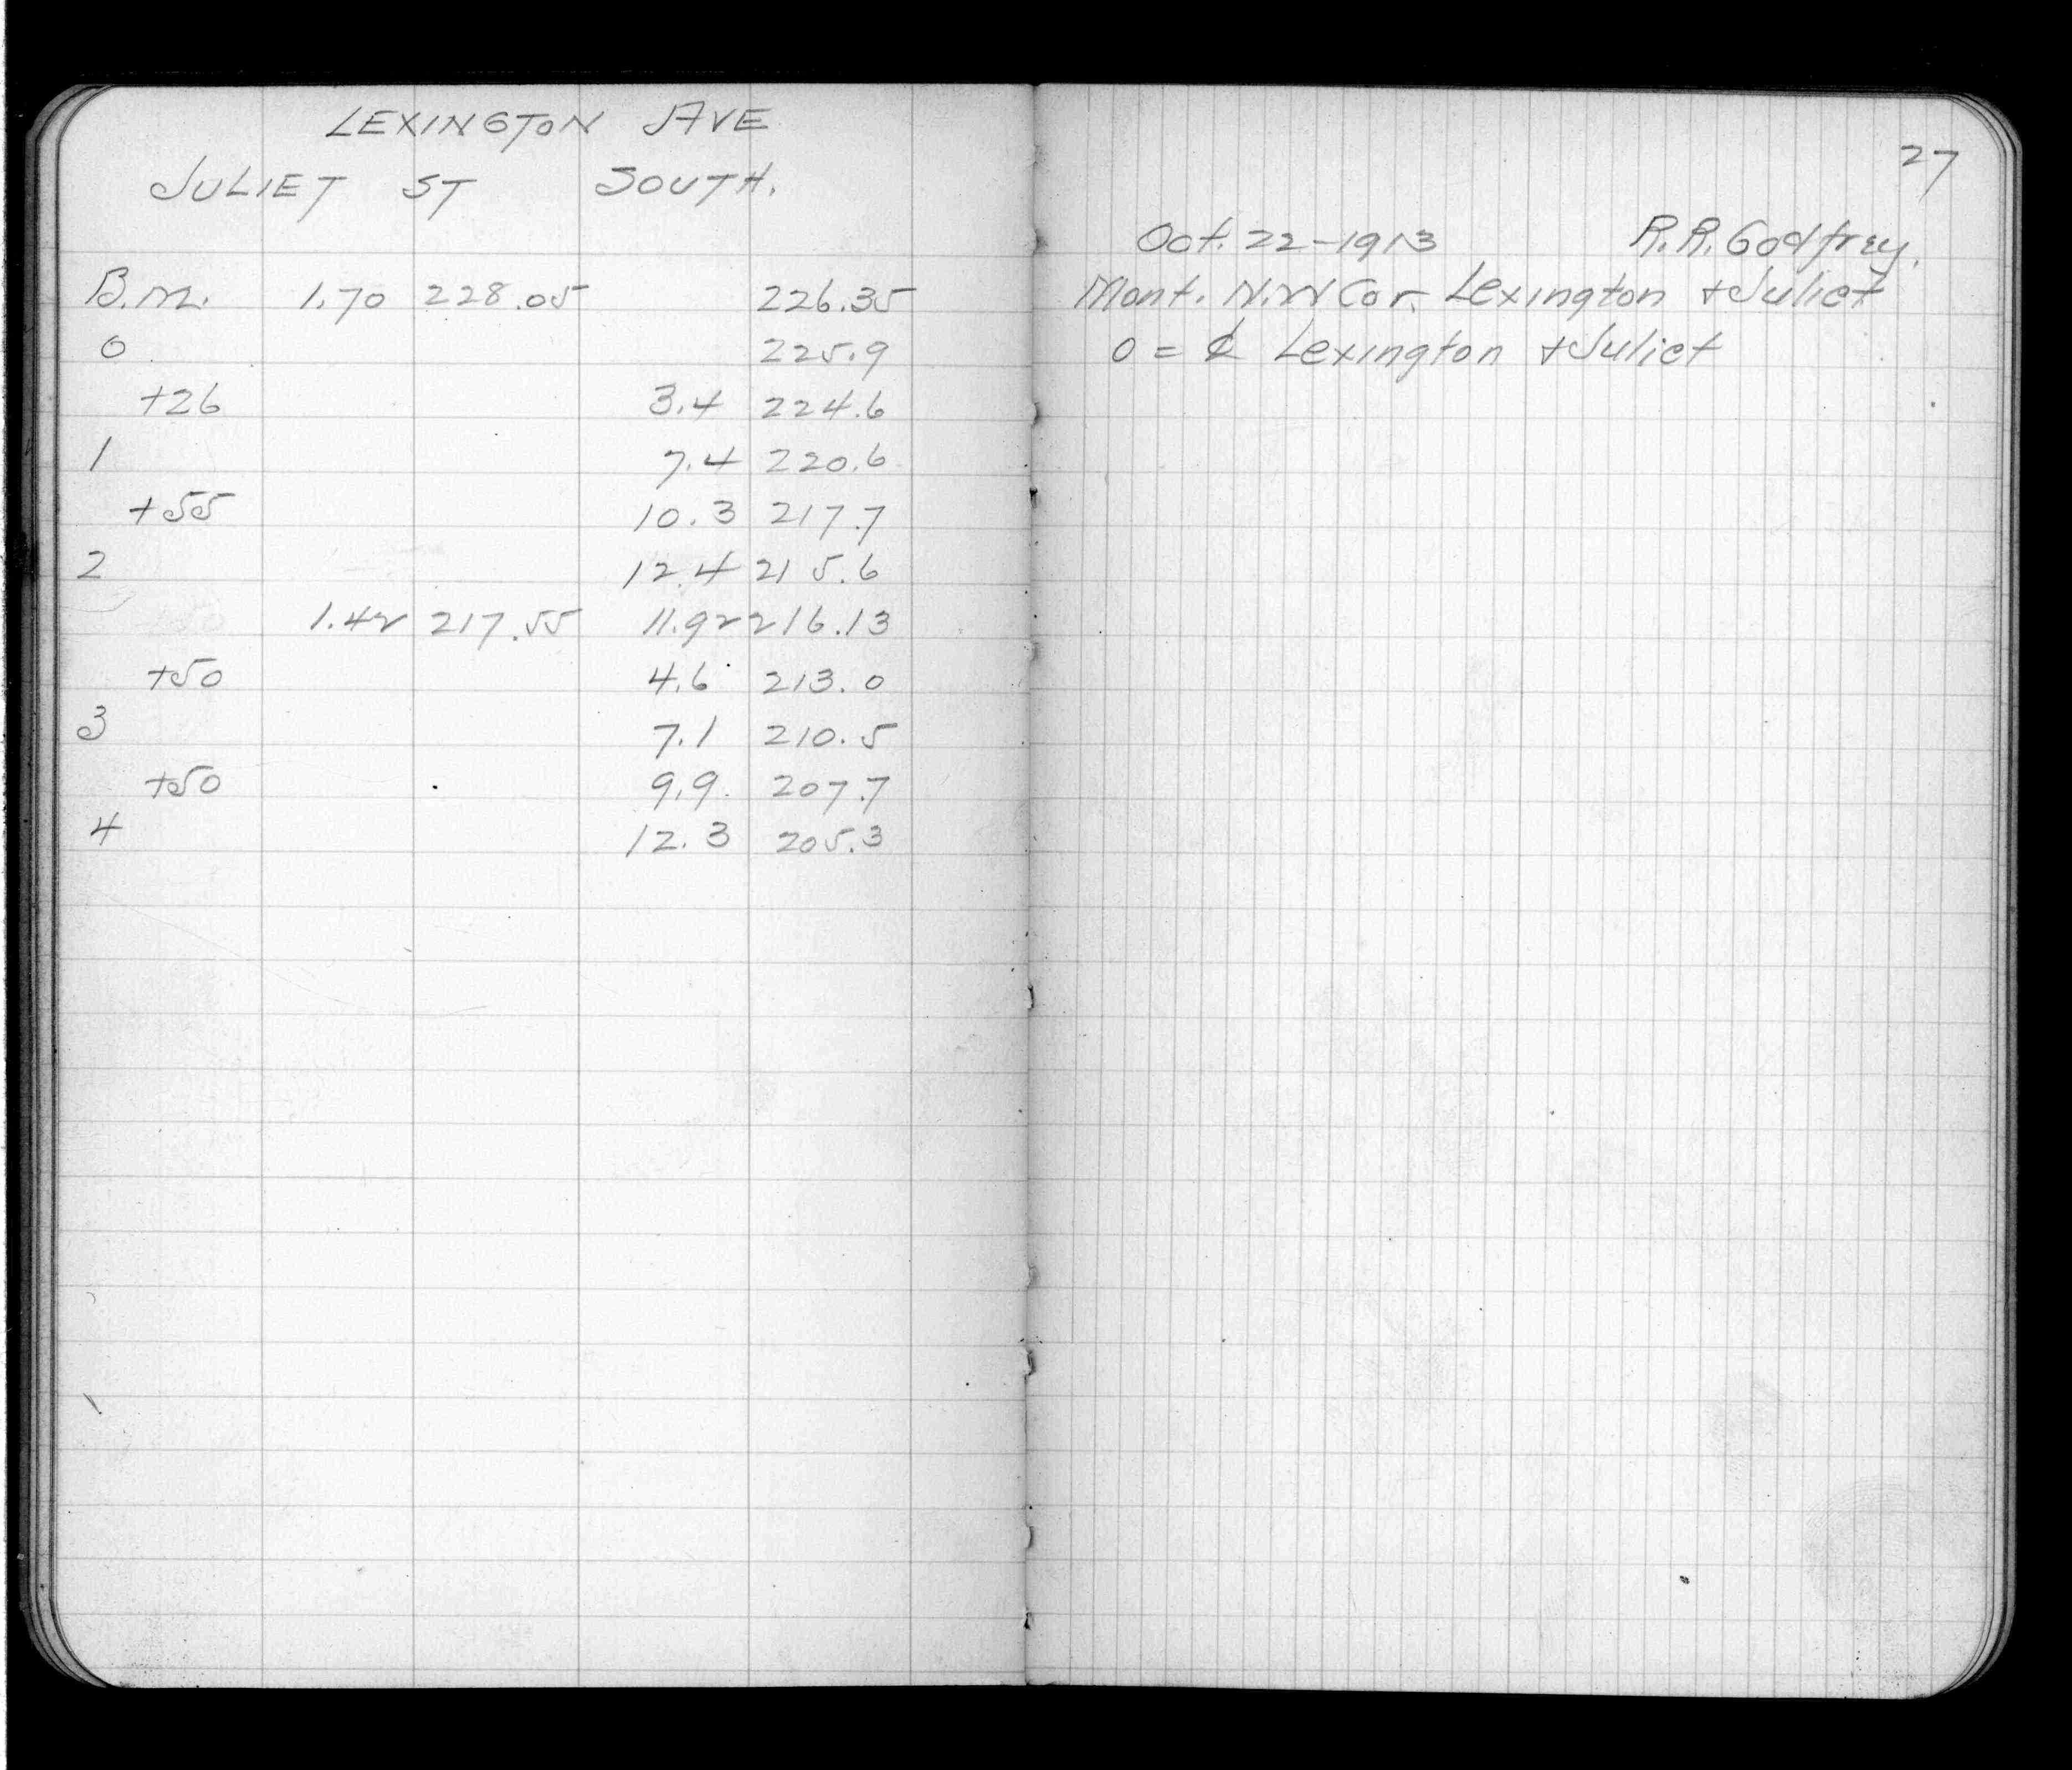 LEXINGTON AVE
JULIET ST SOUTH.
B.M. 1.70 228.05 226.35
0 225.9
+26 3.4 224.6
1 7.4 220.6
+55 10.3 217.7
2 12.4 215.6
1.42 217.55 11.92 216.13
+50 4.6 213.0
3 7.1 210.5
+50 9.9 207.7
4 12.3 205.3
27
Oct. 22-1913 R.R. Godfrey.
Mont. N.W Cor. Lexington + Juliet
0 = ₵ Lexington + Juliet